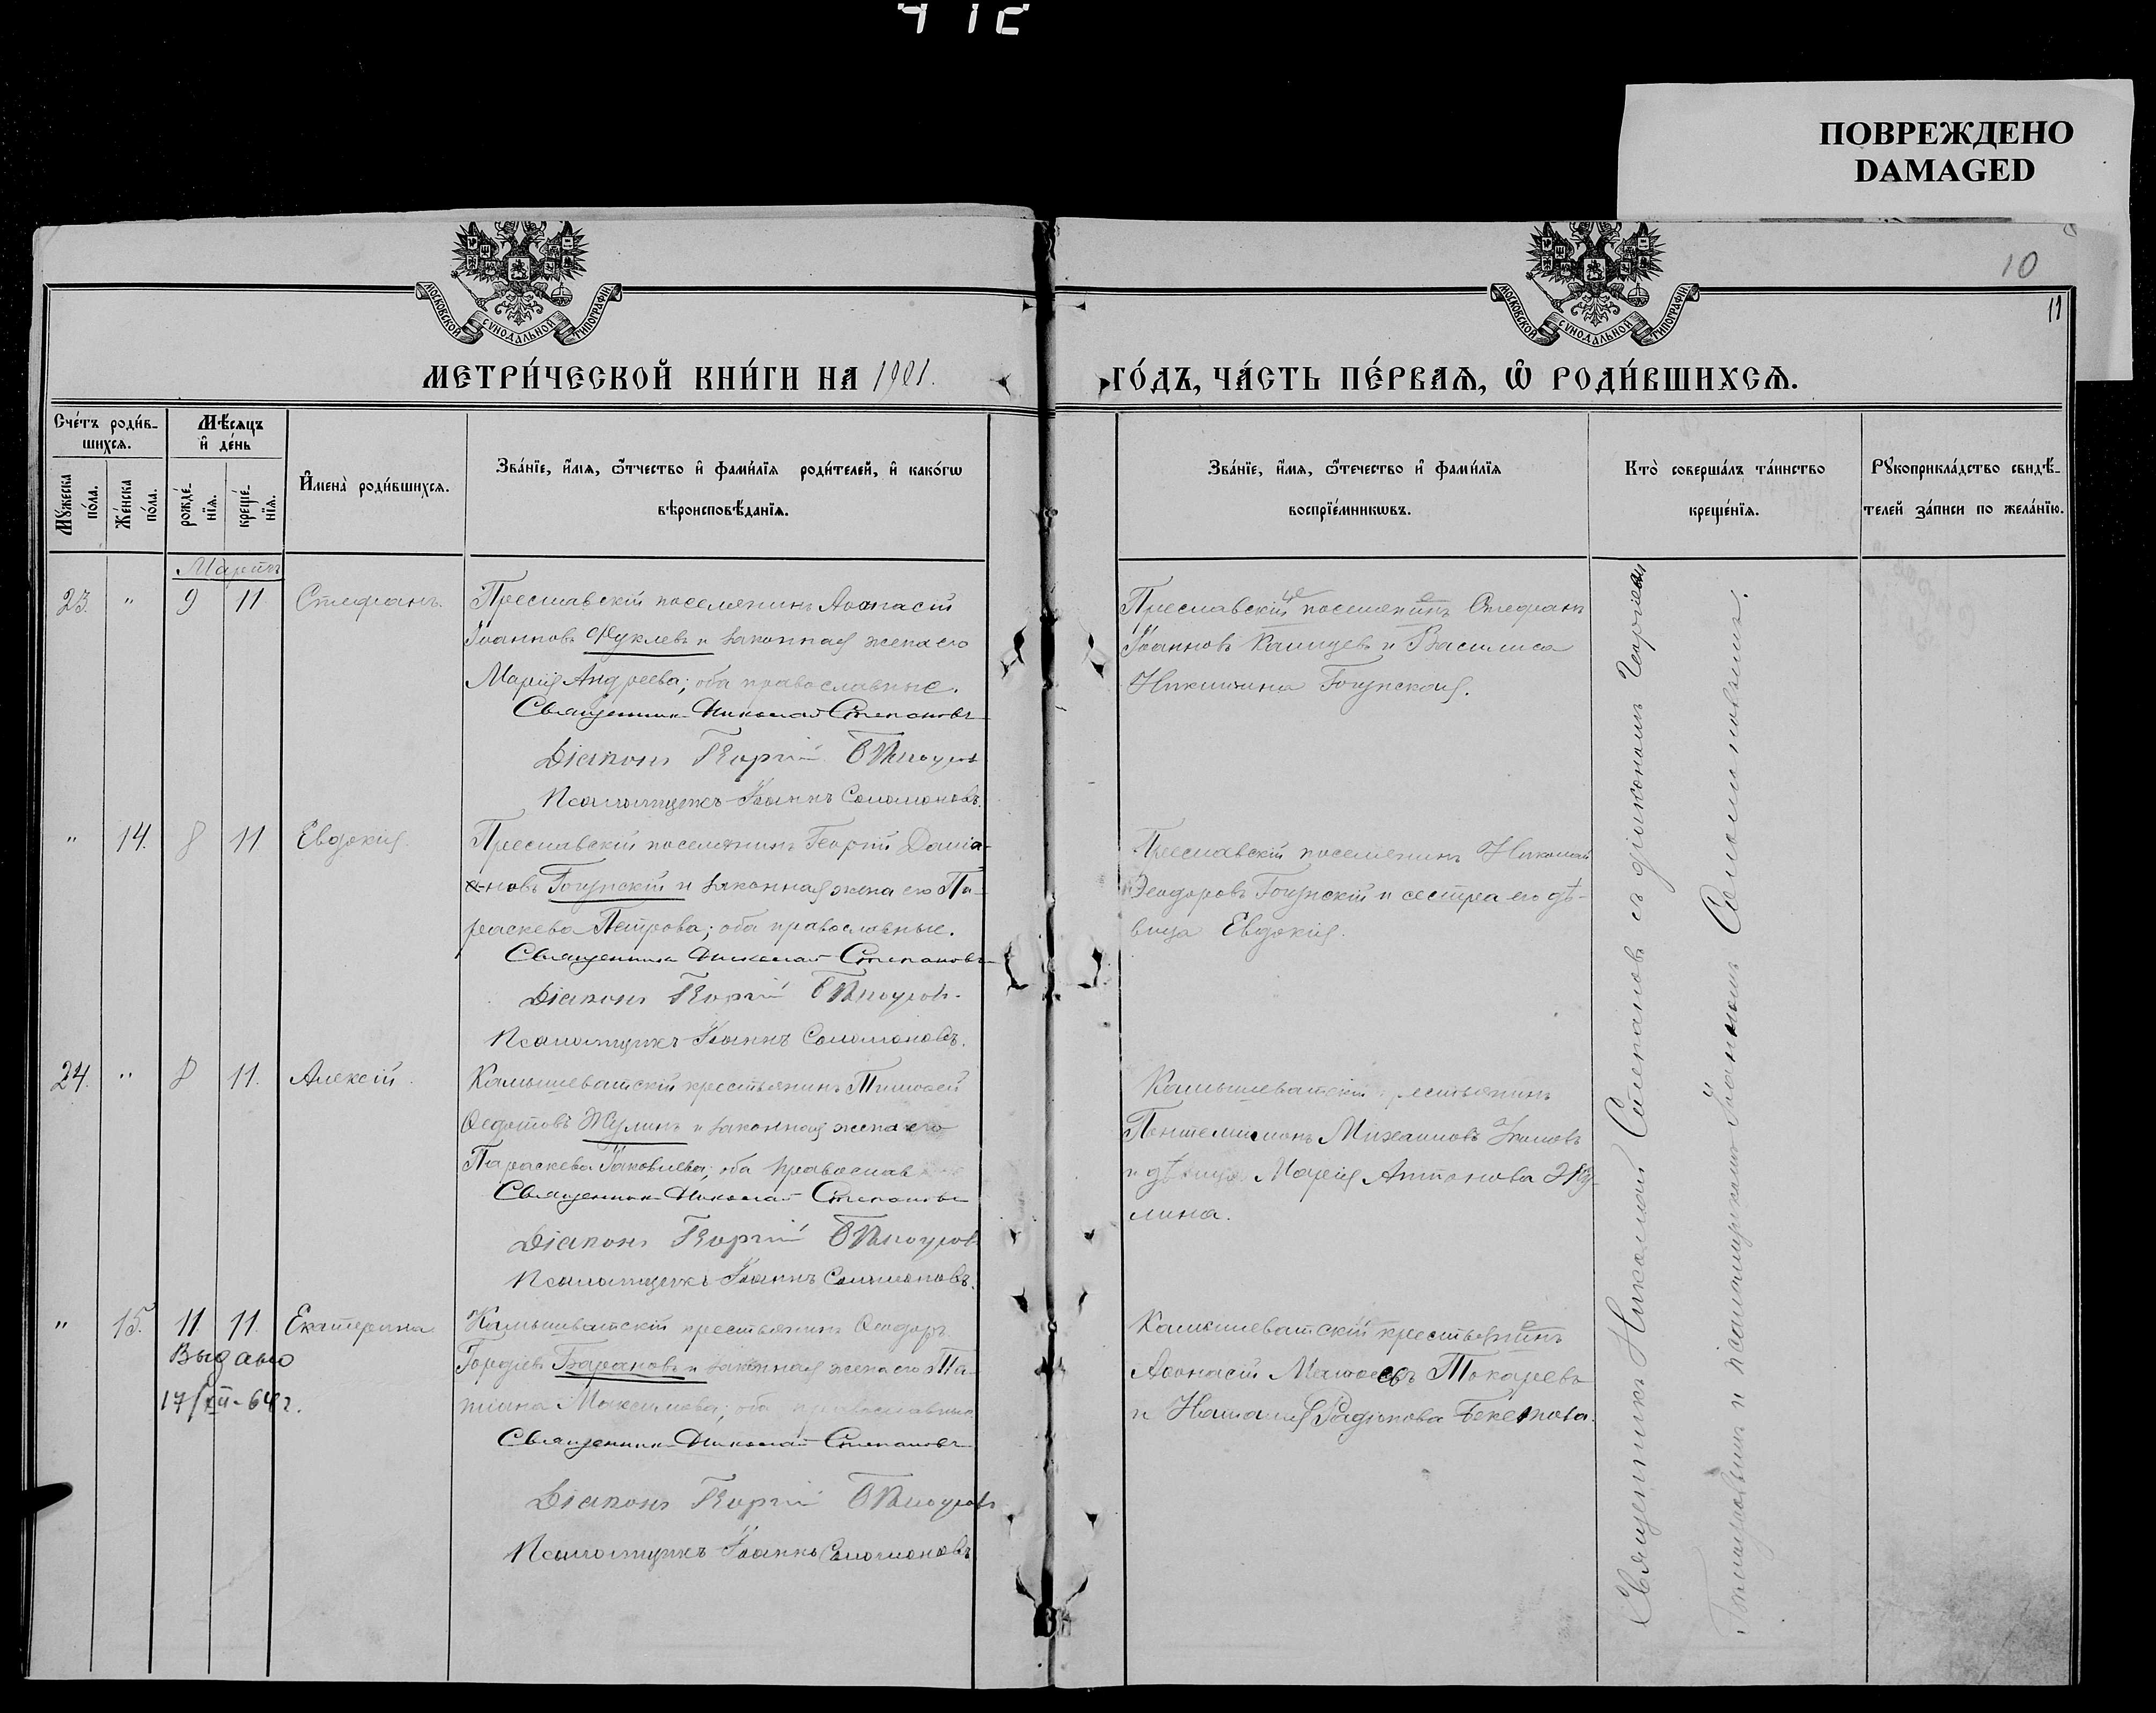 412
ПОВРЕЖДЕНО
DAMAGED
10
11
МОСКОВСКОЙ СѴНОДАЛЬНОЙ ТИПОГРАФІИ
МОСКОВСКОЙ СѴНОДАЛЬНОЙ ТИПОГРАФІИ
МЕТРИ́ЧЕСКОЙ КНИ́ГИ НА 1901.
ГО́ДЪ, ЧА́СТЬ ПЕ́РВАѦ, Ѽ РОДИ́ВШИХСѦ.
Сче́тъ роди́в-
шихсѧ.
Мꙋ́жеска по́ла.
Же́нска по́ла.
Мѣ́сѧцъ
и҆ де́нь
рожде́-
нїѧ.
креще́-
нїѧ.
И҆мена̀ роди́вшихсѧ.
Зва́нїе, и҆́мѧ, ѻ҆́тчество и҆ фами́лїѧ роди́телей, и҆ како́гѡ
вѣроисповѣ́данїѧ.
Зва́нїе, и҆́мѧ, ѻ҆те́чество и҆ фами́лїѧ
воспрїе́мникѡвъ.
Кто̀ соверша́лъ та́инство
креще́нїѧ.
Рꙋкоприкла́дство свидѣ́-
телей за́писи по жела́нїю.
Мартъ
23. " 9 11 Стефанъ.
Преславскій поселянинъ Аѳанасій
Іоанновъ Фуклевъ и законная жена его
Марія Андреева; оба православные.
Священникъ Николай Степановъ
Діаконъ Георгій
Псаломщикъ Іоаннъ Соломоновъ.
Преславскій поселянинъ Стефанъ
Іоанновъ Калицевъ и Василиса
Никитина Гогунская.
" 14. 8 11 Евдокія.
Преславскій поселянинъ Георгій Даміа-
новъ Гогунскій и законная жена его Па-
раскева Петрова; оба православные.
Священникъ Николай Степановъ
Діаконъ Георгій
Псаломщикъ Іоаннъ Соломоновъ.
Преславскій поселянинъ Николай
Ѳеодоровъ Гогунскій и сестра его дѣ-
вица Евдокія.
24. " 8 11. Алексій.
Камышеватскій крестьянинъ Тимоѳей
Ѳедотовъ Жулинъ и законная жена его
Параскева Іаковлева; оба православ
Священникъ Николай Степановъ
Діаконъ Георгій
Псаломщикъ Іоаннъ Соломоновъ.
Камышеватскій крестьянинъ
Пантелеимонъ Михаиловъ
и дѣвица Марія Антонова Жу-
лина.
" 15. 11. 11. Екатерина
Выдано
17/XII-64 г.
Камышеватскій крестьянинъ Ѳеодоръ
Гордіевъ Барановъ и законная жена его Та-
тіана Максимова; оба православные
Священникъ Николай Степановъ
Діаконъ Георгій
Псаломщикъ Іоаннъ Соломоновъ
Камышеватскій крестьянинъ
Аѳанасій Матѳеевъ Токаревъ
и Наталія Родіонова Бекетова.
Священникъ Николай Степановъ съ діакономъ Георгіемъ
и псаломщикомъ Іоанномъ Соломоновымъ.